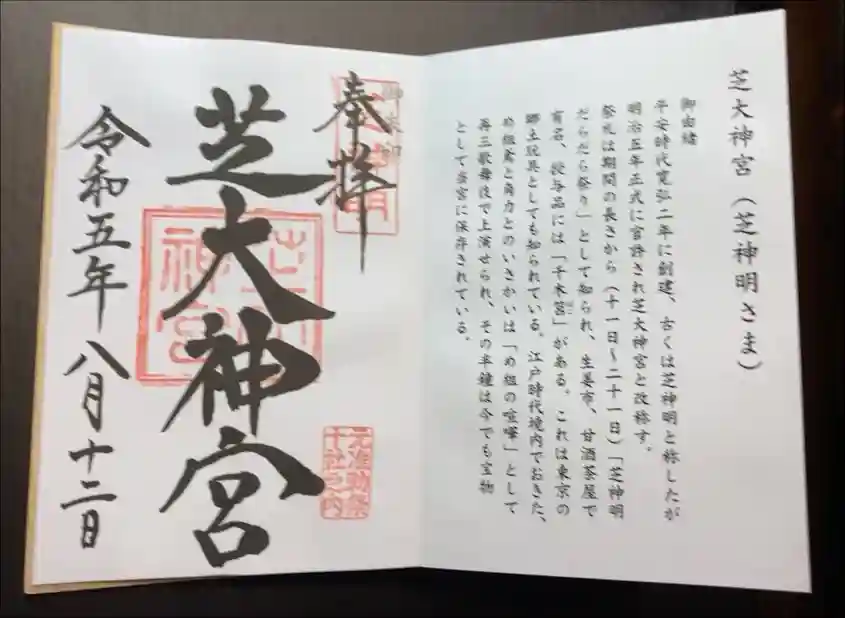 芝大神宮（芝神明さま）
御由緒
平安時代寛弘二年に創建、古くは芝神明と称したが
明治五年正式に官許され芝大神宮と改称す。
祭礼は期間の長さから（十一日～二十一日）「芝神明
だらだら祭り」として知られ、生姜市、甘酒茶屋で
有名、授与品には「千木筥」がある。これは東京の
郷土玩具としても知られている。江戸時代境内でおきた、
め組鳶と角力とのいさかいは「め組の喧嘩」として
再三歌舞伎で上演せられ、その半鐘は今でも宝物
として当宮に保存されている。
奉拝
元准勅祭
十社之内
芝大神宮
令和五年八月十二日